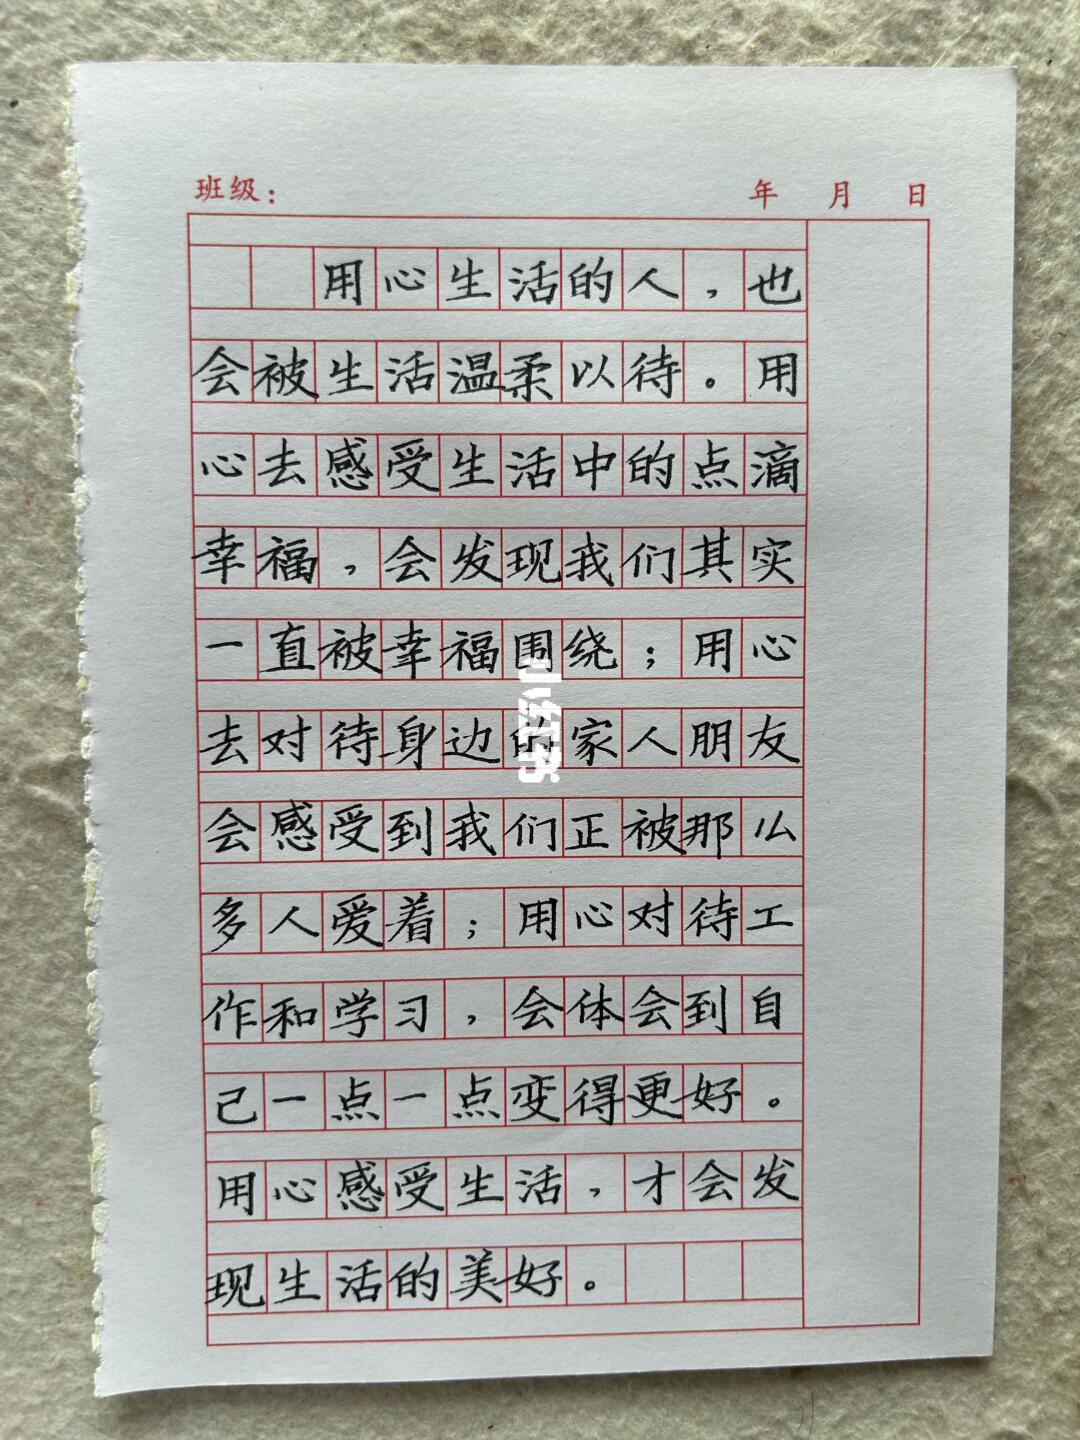 班级： 年 月 日
用心生活的人，也
会被生活温柔以待。用
心去感受生活中的点滴
幸福，会发现我们其实
一直被幸福围绕；用心
去对待身边的家人朋友
会感受到我们正被那么
多人爱着；用心对待工
作和学习，会体会到自
己一点一点变得更好。
用心感受生活，才会发
现生活的美好。
小红书